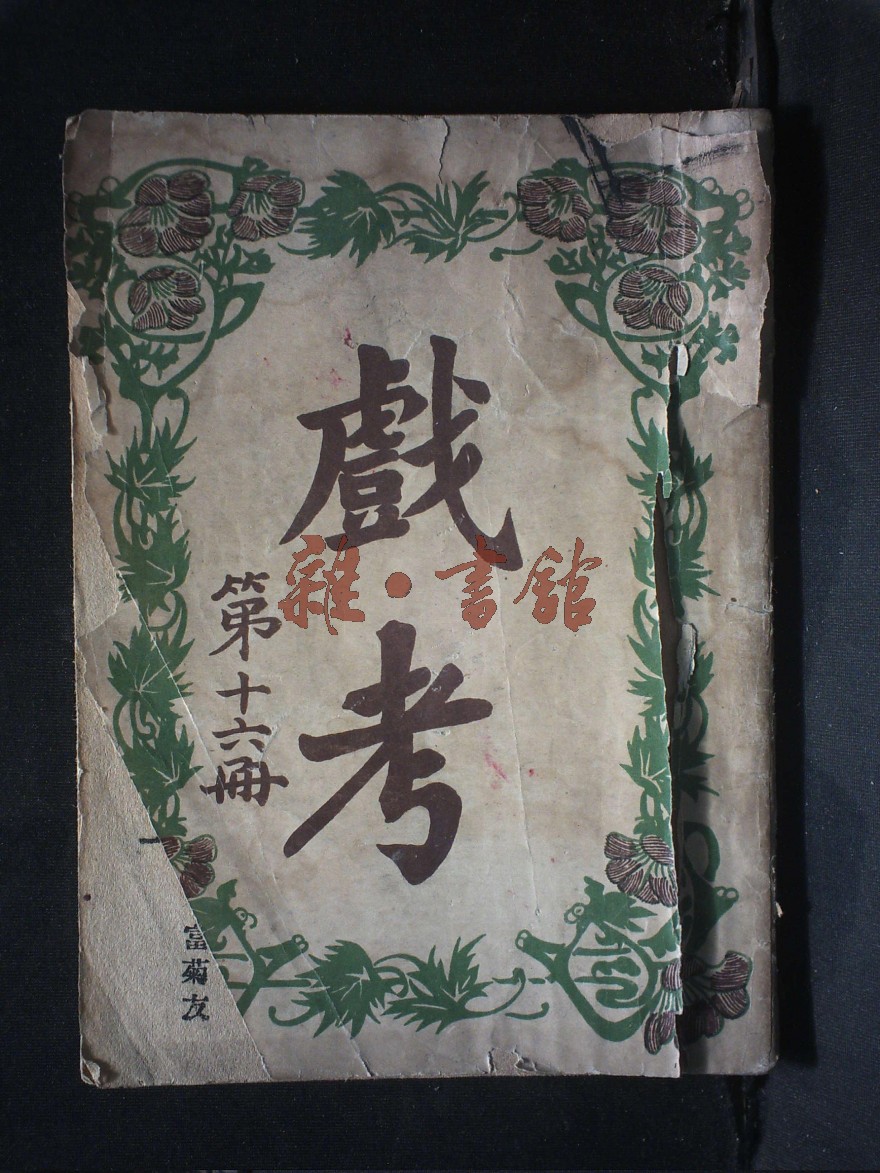 戲考
第十六冊
雜·書館
富菊友